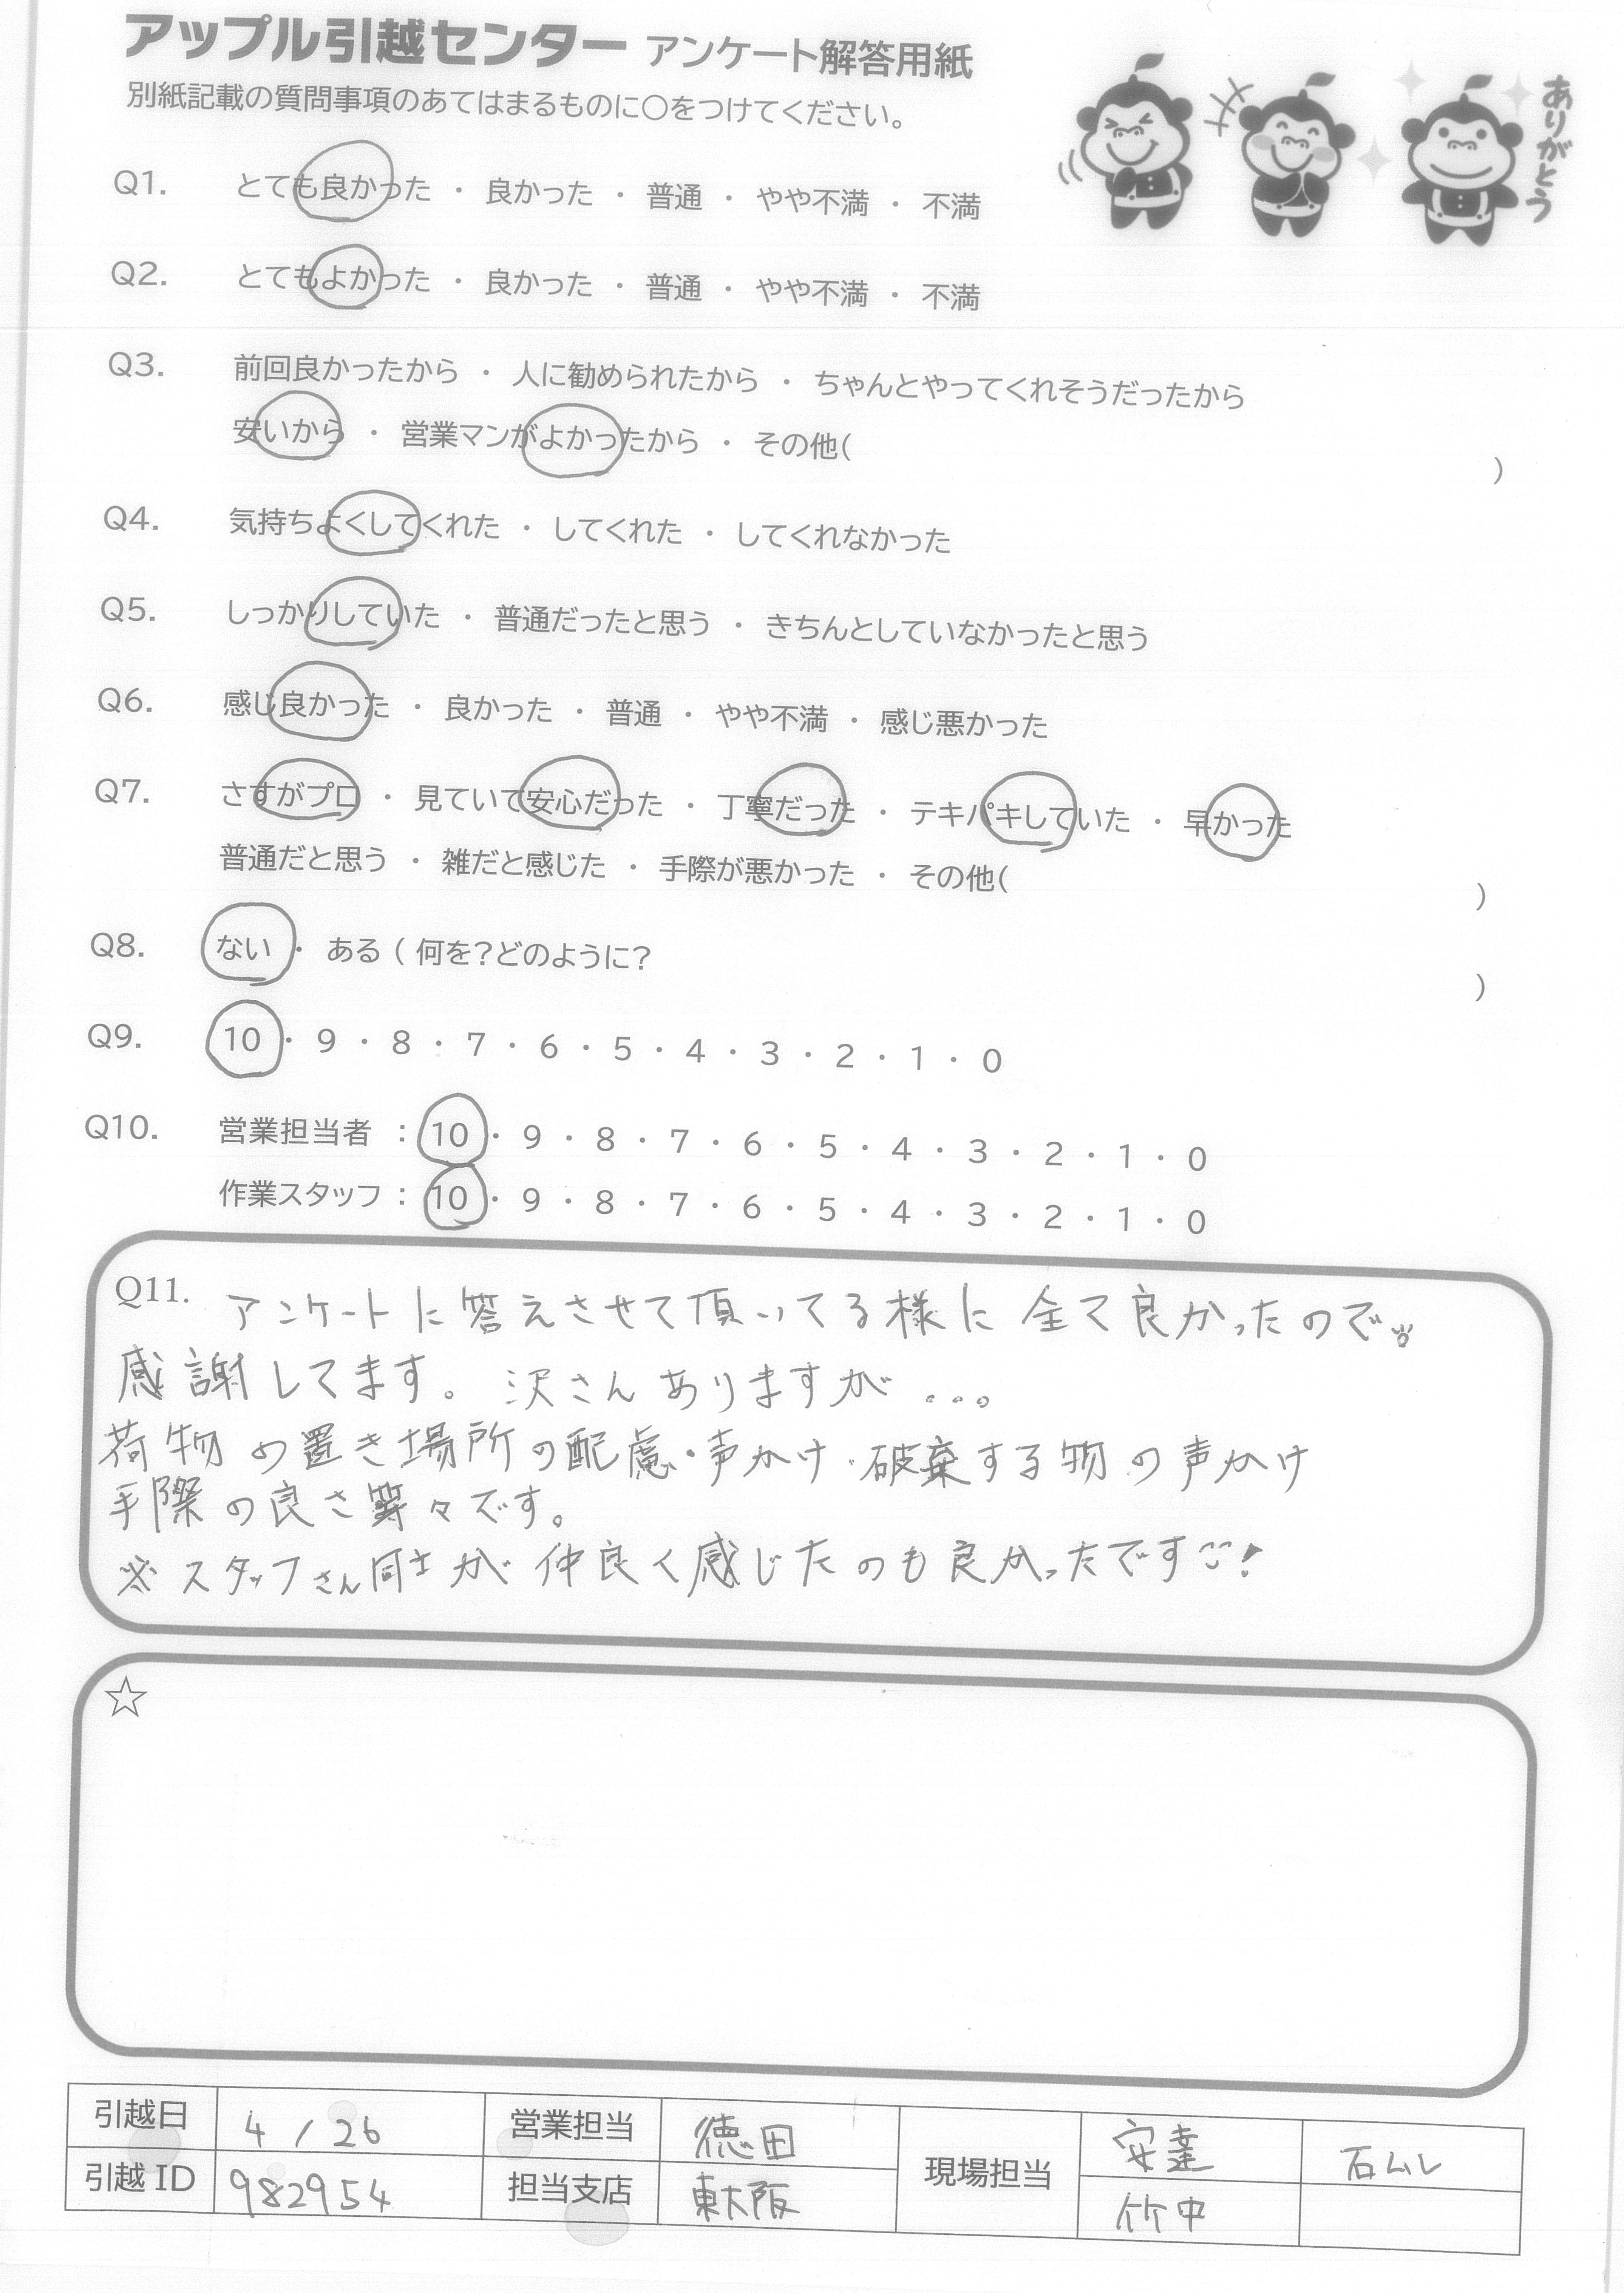 アップル引越センター アンケート解答用紙
別紙記載の質問事項のあてはまるものに○をつけてください。
ありがとう
Q1. とても良かった ・ 良かった ・ 普通 ・ やや不満 ・ 不満
Q2. とてもよかった ・ 良かった ・ 普通 ・ やや不満 ・ 不満
Q3. 前回良かったから ・ 人に勧められたから ・ ちゃんとやってくれそうだったから
安いから ・ 営業マンがよかったから ・ その他( )
Q4. 気持ちよくしてくれた ・ してくれた ・ してくれなかった
Q5. しっかりしていた ・ 普通だったと思う ・ きちんとしていなかったと思う
Q6. 感じ良かった ・ 良かった ・ 普通 ・ やや不満 ・ 感じ悪かった
Q7. さすがプロ ・ 見ていて安心だった ・ 丁寧だった ・ テキパキしていた ・ 早かった
普通だと思う ・ 雑だと感じた ・ 手際が悪かった ・ その他( )
Q8. ない ・ ある ( 何を?どのように? )
Q9. 10 ・ 9 ・ 8 ・ 7 ・ 6 ・ 5 ・ 4 ・ 3 ・ 2 ・ 1 ・ 0
Q10. 営業担当者 : 10 ・ 9 ・ 8 ・ 7 ・ 6 ・ 5 ・ 4 ・ 3 ・ 2 ・ 1 ・ 0
作業スタッフ : 10 ・ 9 ・ 8 ・ 7 ・ 6 ・ 5 ・ 4 ・ 3 ・ 2 ・ 1 ・ 0
Q11. アンケートに答えさせて頂いてる様に 全て良かったので
感謝してます。沢さんありますが...。
荷物の置き場所の配慮・声かけ・破棄する物の声かけ
手際の良さ等々です。
※スタッフさん同士が仲良く感じたのも良かったです!
☆
引越日 4/26 営業担当 徳田 現場担当 安達 石ムレ
引越ID 982954 担当支店 東大阪 竹中